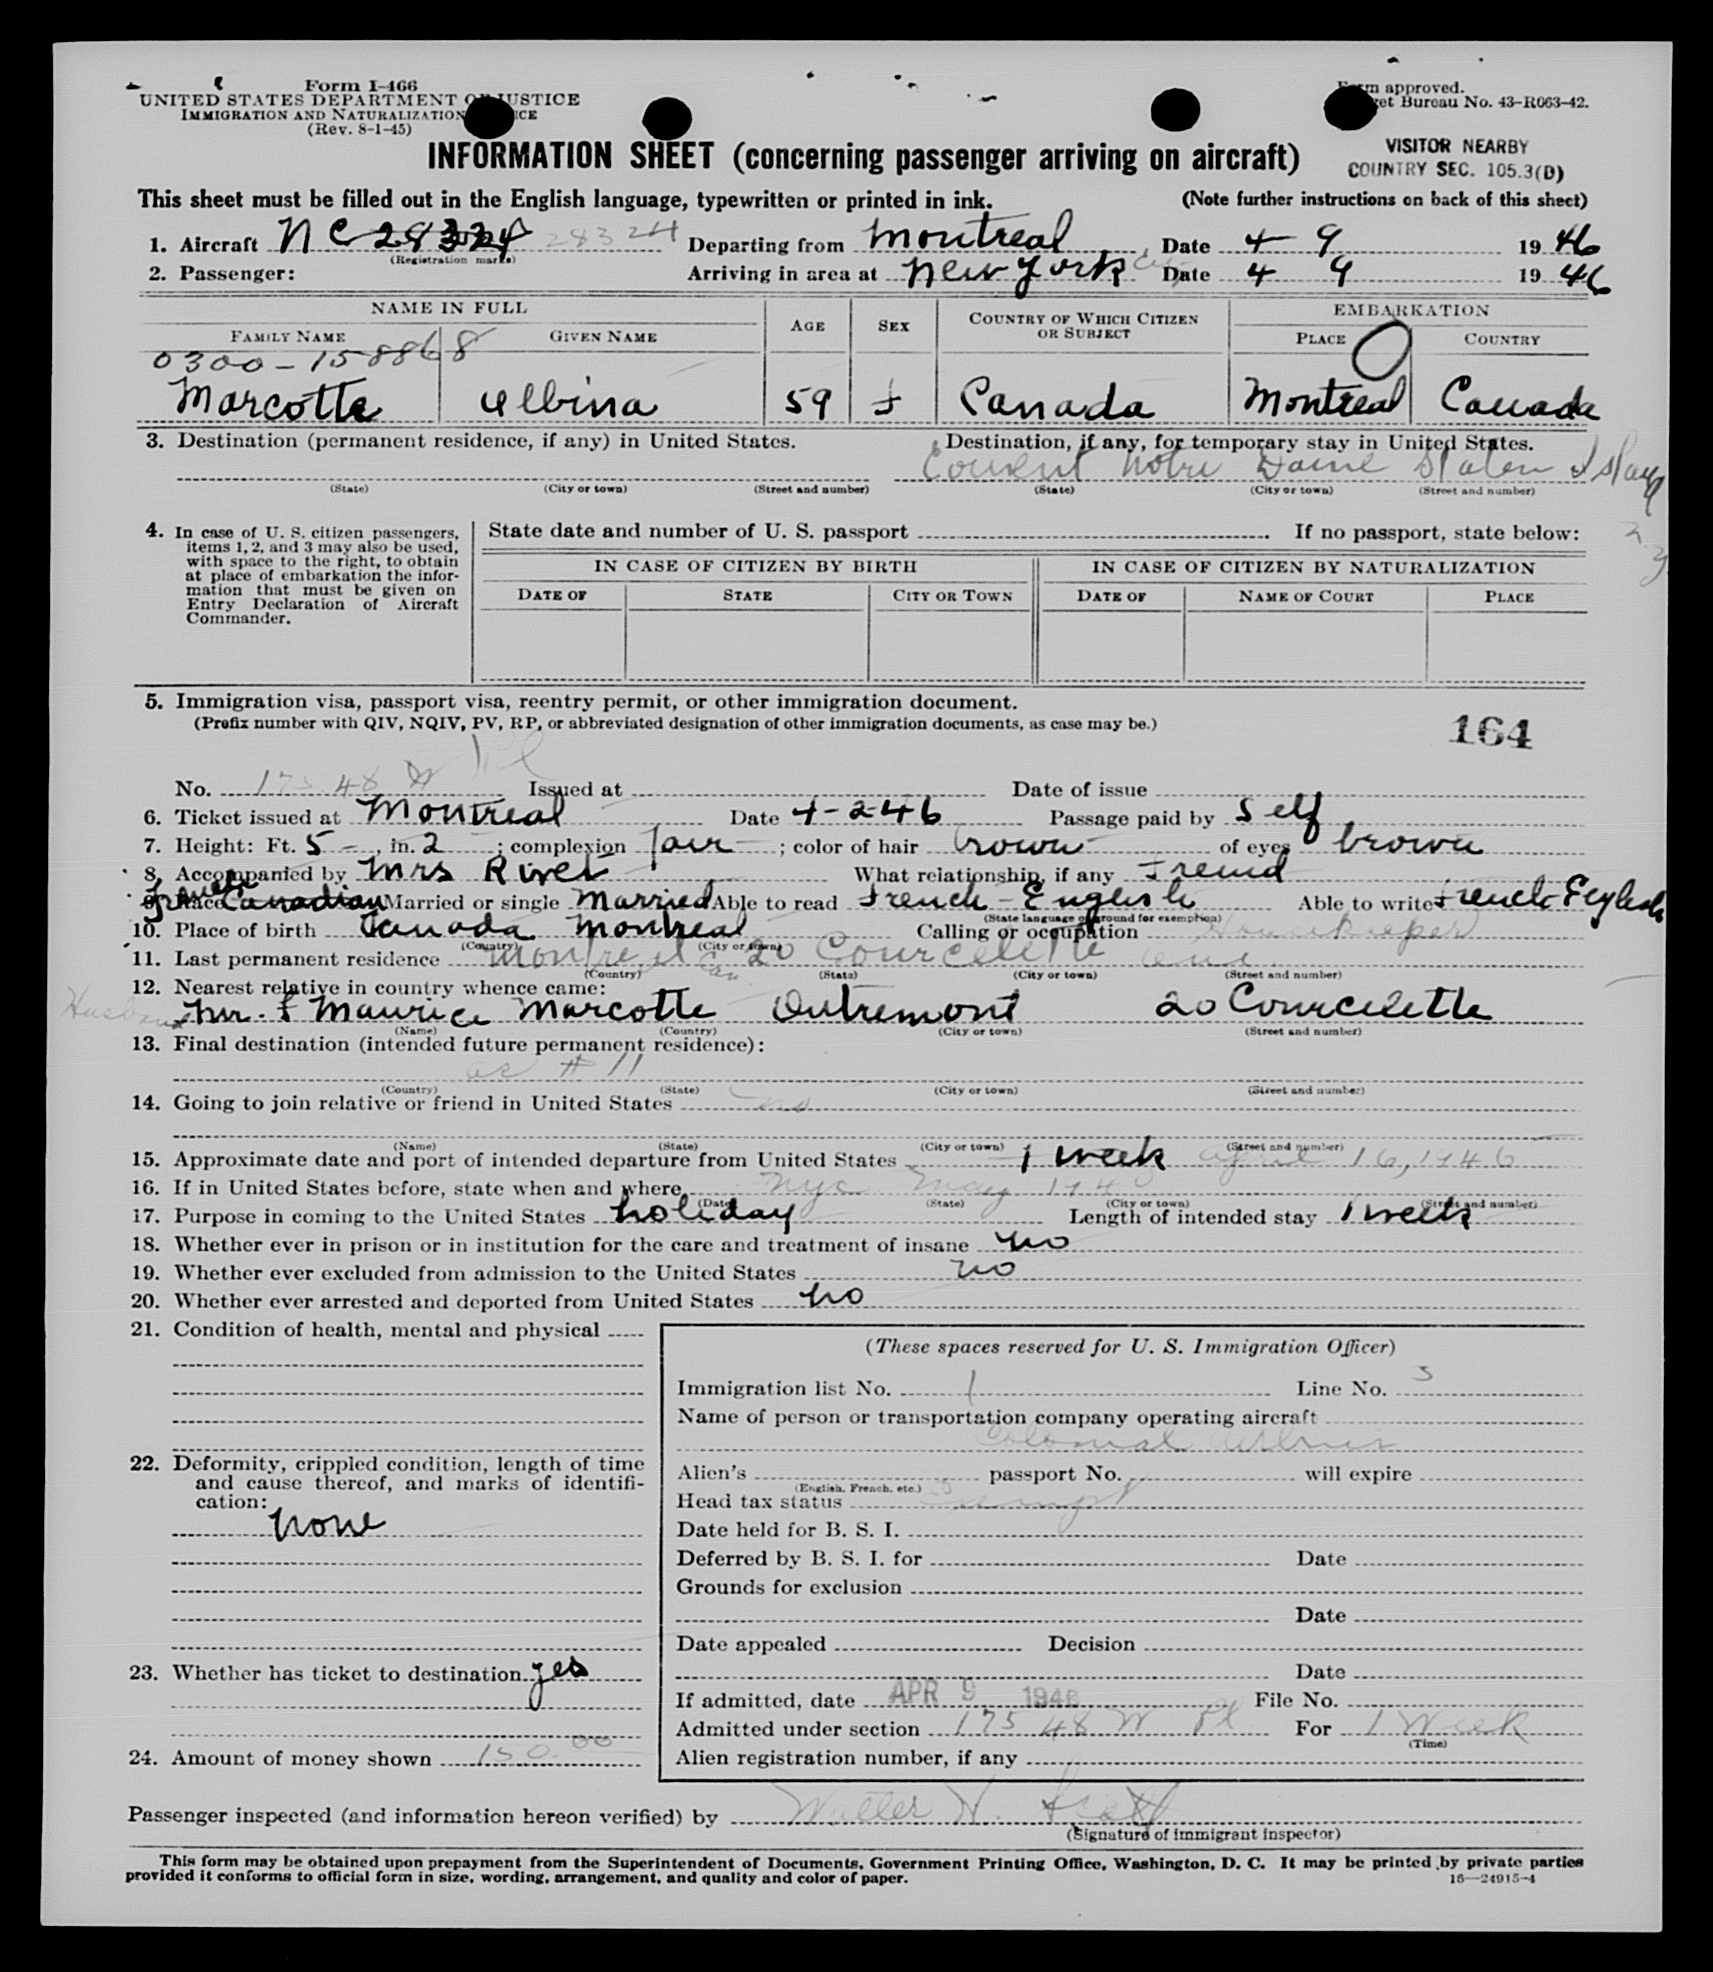 Form I-466
UNITED STATES DEPARTMENT OF JUSTICE
IMMIGRATION AND NATURALIZATION SERVICE
(Rev. 8-1-45)
Form approved.
Budget Bureau No. 43-R063-42.
INFORMATION SHEET (concerning passenger arriving on aircraft)
VISITOR NEARBY
COUNTRY SEC. 105.3(D)
This sheet must be filled out in the English language, typewritten or printed in ink. (Note further instructions on back of this sheet)
1. Aircraft NC 28324 28324 Departing from Montreal Date 4 9 1946
(Registration marks)
2. Passenger: Arriving in area at New York City Date 4 9 1946
NAME IN FULL AGE SEX COUNTRY OF WHICH CITIZEN OR SUBJECT EMBARKATION
FAMILY NAME GIVEN NAME PLACE COUNTRY
0300-158868
Marcotte Albina 59 f Canada Montreal Canada
3. Destination (permanent residence, if any) in United States. Destination, if any, for temporary stay in United States.
Convent Notre Dame Staten Island
N.Y.
(State) (City or town) (Street and number) (State) (City or town) (Street and number)
4. In case of U. S. citizen passengers, items 1, 2, and 3 may also be used, with space to the right, to obtain at place of embarkation the information that must be given on Entry Declaration of Aircraft Commander.
State date and number of U. S. passport If no passport, state below:
IN CASE OF CITIZEN BY BIRTH IN CASE OF CITIZEN BY NATURALIZATION
DATE OF STATE CITY OR TOWN DATE OF NAME OF COURT PLACE
5. Immigration visa, passport visa, reentry permit, or other immigration document.
(Prefix number with QIV, NQIV, PV, RP, or abbreviated designation of other immigration documents, as case may be.)
164
No. 175.48 W Pl Issued at Date of issue
6. Ticket issued at Montreal Date 4-2-46 Passage paid by Self
7. Height: Ft. 5 -, in. 2; complexion fair; color of hair brown of eyes brown
8. Accompanied by Mrs Rivet What relationship, if any Friend
9. Race French Canadian Married or single Married Able to read French - English Able to write French English
(State language or ground for exemption)
10. Place of birth Canada Montreal Calling or occupation Housekeeper
(Country) (City or town)
11. Last permanent residence Montreal Can 20 Courcelette ave.
(Country) (State) (City or town) (Street and number)
12. Nearest relative in country whence came:
Husband Mr. J Maurice Marcotte Outremont 20 Courcelette
(Name) (Country) (City or town) (Street and number)
13. Final destination (intended future permanent residence):
as # 11
(Country) (State) (City or town) (Street and number)
14. Going to join relative or friend in United States no
(Name) (State) (City or town) (Street and number)
15. Approximate date and port of intended departure from United States 1 week April 16, 1946
16. If in United States before, state when and where NYC May 1940
(Date) (State) (City or town) (Street and number)
17. Purpose in coming to the United States holiday Length of intended stay 1 week
18. Whether ever in prison or in institution for the care and treatment of insane no
19. Whether ever excluded from admission to the United States no
20. Whether ever arrested and deported from United States no
21. Condition of health, mental and physical
22. Deformity, crippled condition, length of time and cause thereof, and marks of identification:
none
23. Whether has ticket to destination yes
24. Amount of money shown 150.00
(These spaces reserved for U. S. Immigration Officer)
Immigration list No. 1 Line No. 3
Name of person or transportation company operating aircraft
Colonial Airlines
Alien's passport No. will expire
(English, French, etc.)
Head tax status Exempt
Date held for B. S. I.
Deferred by B. S. I. for Date
Grounds for exclusion
Date
Date appealed Decision
Date
If admitted, date APR 9 1946 File No.
Admitted under section 175 48 W Pl For 1 Week
(Time)
Alien registration number, if any
Passenger inspected (and information hereon verified) by Walter H.
(Signature of immigrant inspector)
This form may be obtained upon prepayment from the Superintendent of Documents, Government Printing Office, Washington, D. C. It may be printed by private parties
provided it conforms to official form in size, wording, arrangement, and quality and color of paper.
16—24915-4